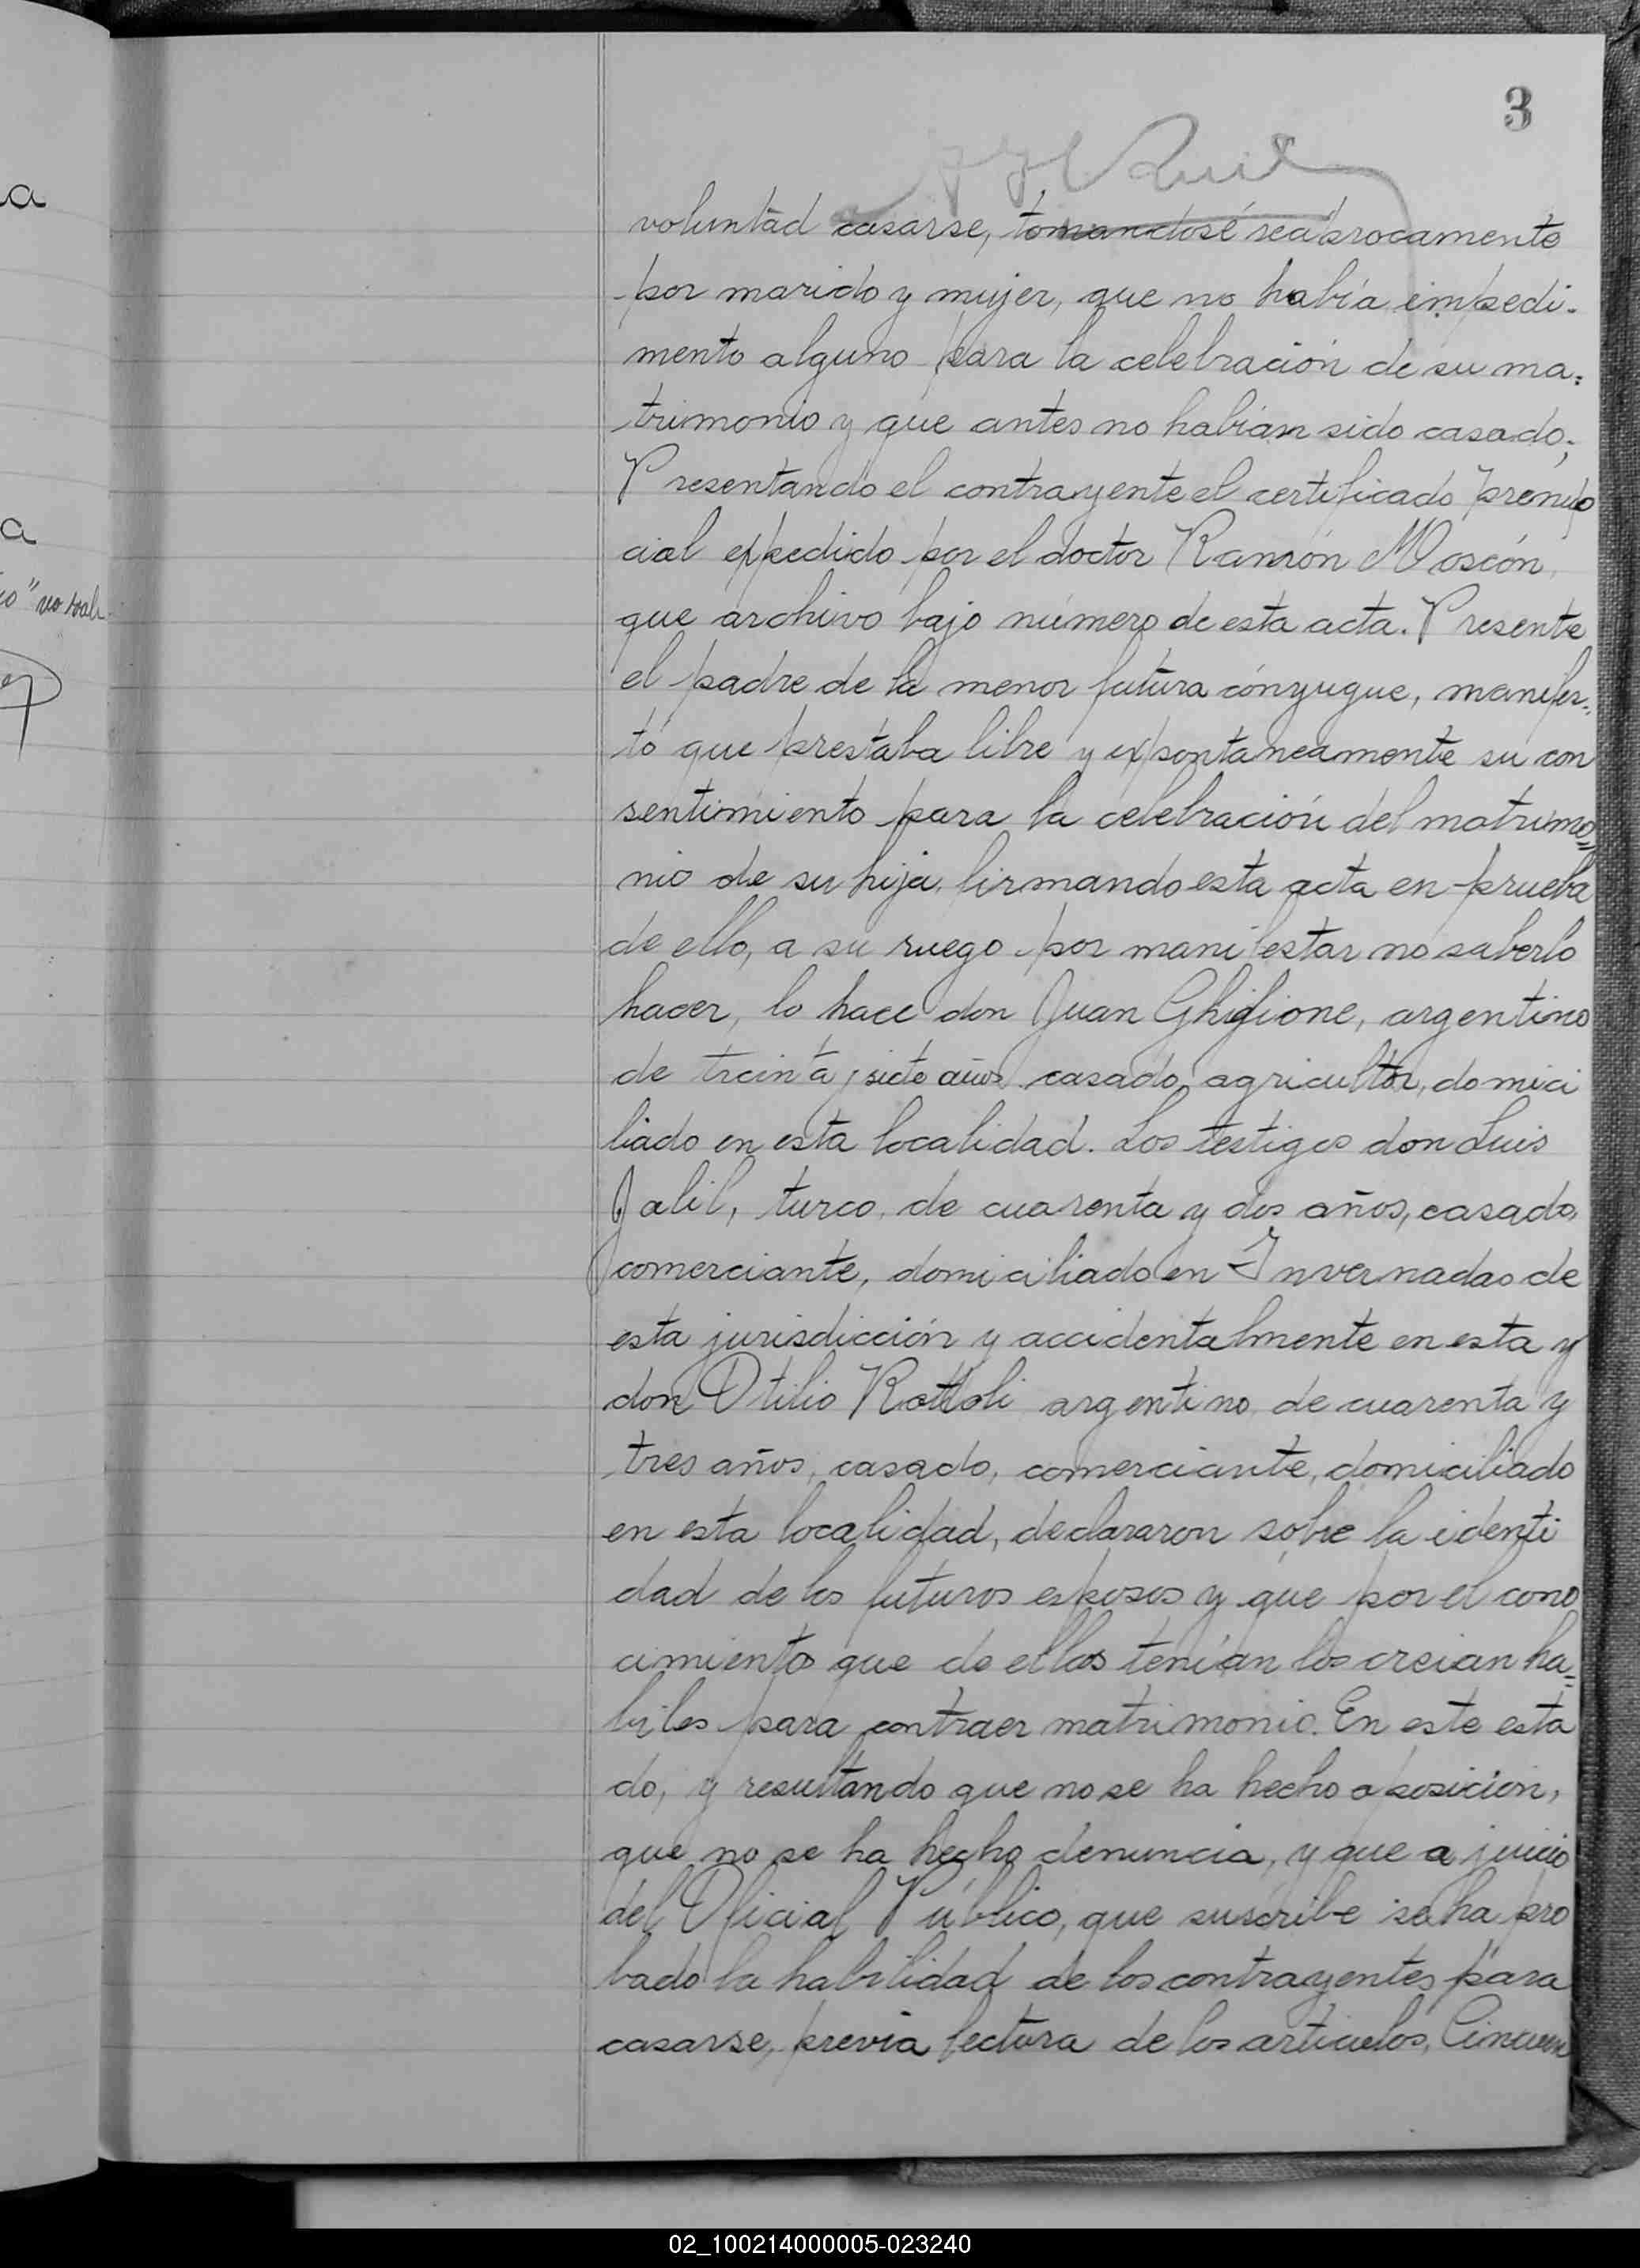 a
a
io" no vale
3
voluntad casarse, tomandosé reciprocamente
por marido y mujer, que no había impedi-
mento alguno para la celebración de su ma=
trimonio y que antes no habían sido casado;
Presentando el contrayente el certificado prenup
cial expedido por el doctor Ramón Moscón,
que archivo bajo número de esta acta. Presente
el padre de la menor futura cónyugue, manifes-
tó que prestaba libre y expontaneamente su con
sentimiento para la celebración del matrimo=
nio de su hija, firmando esta acta en prueba
de ello, a su ruego por manifestar no saberlo
hacer, lo hace don Juan Ghiglione, argentino
de treinta y siete años casado, agricultor, domici
liado en esta localidad. Los testigos don Luis
Jalil, turco, de cuarenta y dos años, casado,
comerciante, domiciliado en Invernadas de
esta jurisdicción y accidentalmente en esta y
don Otilio Rottoli argentino de cuarenta y
tres años, casado, comerciante, domiciliado
en esta localidad, declararon sobre la identi
dad de los futuros esposos y que por el cono
cimiento que de ellos tenían los creian ha=
biles para contraer matrimonio. En este esta
do, y resultando que no se ha hecho oposición,
que no se ha hecho denuncia, y que a juicio
del Oficial Público, que suscribe se ha pro
bado la habilidad de los contrayentes para
casarse, previa lectura de los articulos, Cincuen
02_100214000005-023240